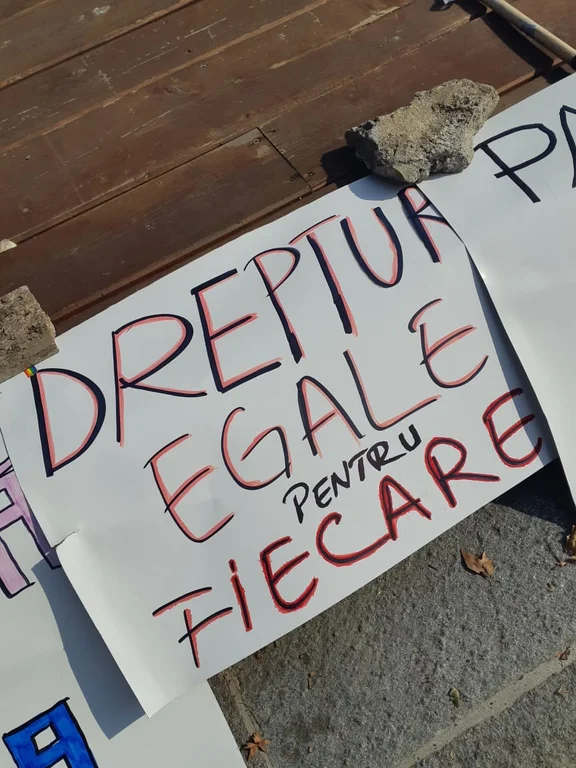 DREPTUR
EGALE
PENTRU
FIECARE